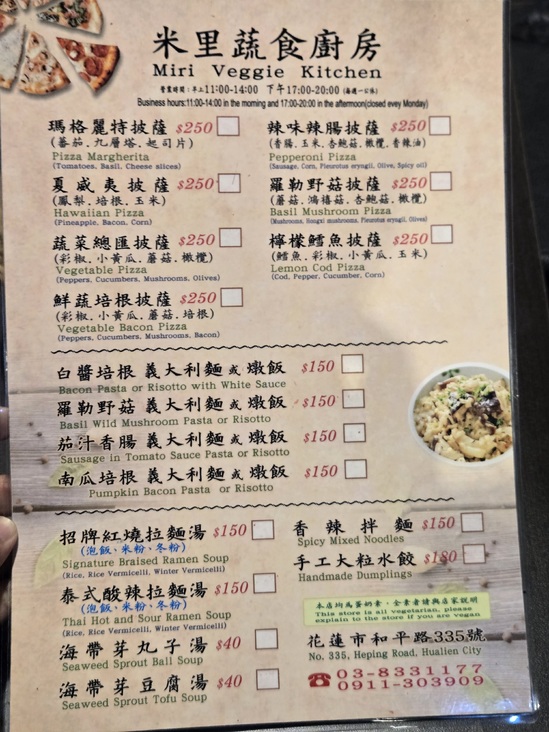 米里蔬食廚房
Miri Veggie Kitchen
營業時間：早上11:00-14:00 下午17:00-20:00 (每週一公休)
Business hours:11:00-14:00 in the morning and 17:00-20:00 in the afternoon(closed evey Monday)
瑪格麗特披薩 $250
(蕃茄.九層塔.起司片)
Pizza Margherita
(Tomatoes, Basil, Cheese slices)
夏威夷披薩 $250
(鳳梨.培根.玉米)
Hawaiian Pizza
(Pineapple, Bacon, Corn)
蔬菜總匯披薩 $250
(彩椒.小黃瓜.蘑菇.橄欖)
Vegetable Pizza
(Peppers, Cucumbers, Mushrooms, Olives)
鮮蔬培根披薩 $250
(彩椒.小黃瓜.蘑菇.培根)
Vegetable Bacon Pizza
(Peppers, Cucumbers, Mushrooms, Bacon)
辣味辣腸披薩 $250
(香腸.玉米.杏鮑菇.橄欖.香辣油)
Pepperoni Pizza
(Sausage, Corn, Pleurotus eryngii, Olive, Spicy oil)
羅勒野菇披薩 $250
(蘑菇.鴻禧菇.杏鮑菇.橄欖)
Basil Mushroom Pizza
(Mushrooms, Hongxi mushrooms, Pleurotus eryngii, Olives)
檸檬鱈魚披薩 $250
(鱈魚.彩椒.小黃瓜.玉米)
Lemon Cod Pizza
(Cod, Pepper, Cucumber, Corn)
白醬培根 義大利麵 或 燉飯 $150
Bacon Pasta or Risotto with White Sauce
羅勒野菇 義大利麵 或 燉飯 $150
Basil Wild Mushroom Pasta or Risotto
茄汁香腸 義大利麵 或 燉飯 $150
Sausage in Tomato Sauce Pasta or Risotto
南瓜培根 義大利麵 或 燉飯 $150
Pumpkin Bacon Pasta or Risotto
招牌紅燒拉麵湯 $150
(泡飯、米粉、冬粉)
Signature Braised Ramen Soup
(Rice, Rice Vermicelli, Winter Vermicelli)
泰式酸辣拉麵湯 $150
(泡飯、米粉、冬粉)
Thai Hot and Sour Ramen Soup
(Rice, Rice Vermicelli, Winter Vermicelli)
海帶芽丸子湯 $40
Seaweed Sprout Ball Soup
海帶芽豆腐湯 $40
Seaweed Sprout Tofu Soup
香辣拌麵 $150
Spicy Mixed Noodles
手工大粒水餃 $180
Handmade Dumplings
本店均為蛋奶素，全素者請與店家說明
This store is all vegetarian, please
explain to the store if you are vegan
花蓮市和平路335號
No. 335, Heping Road, Hualien City
03-8331177
0911-303909